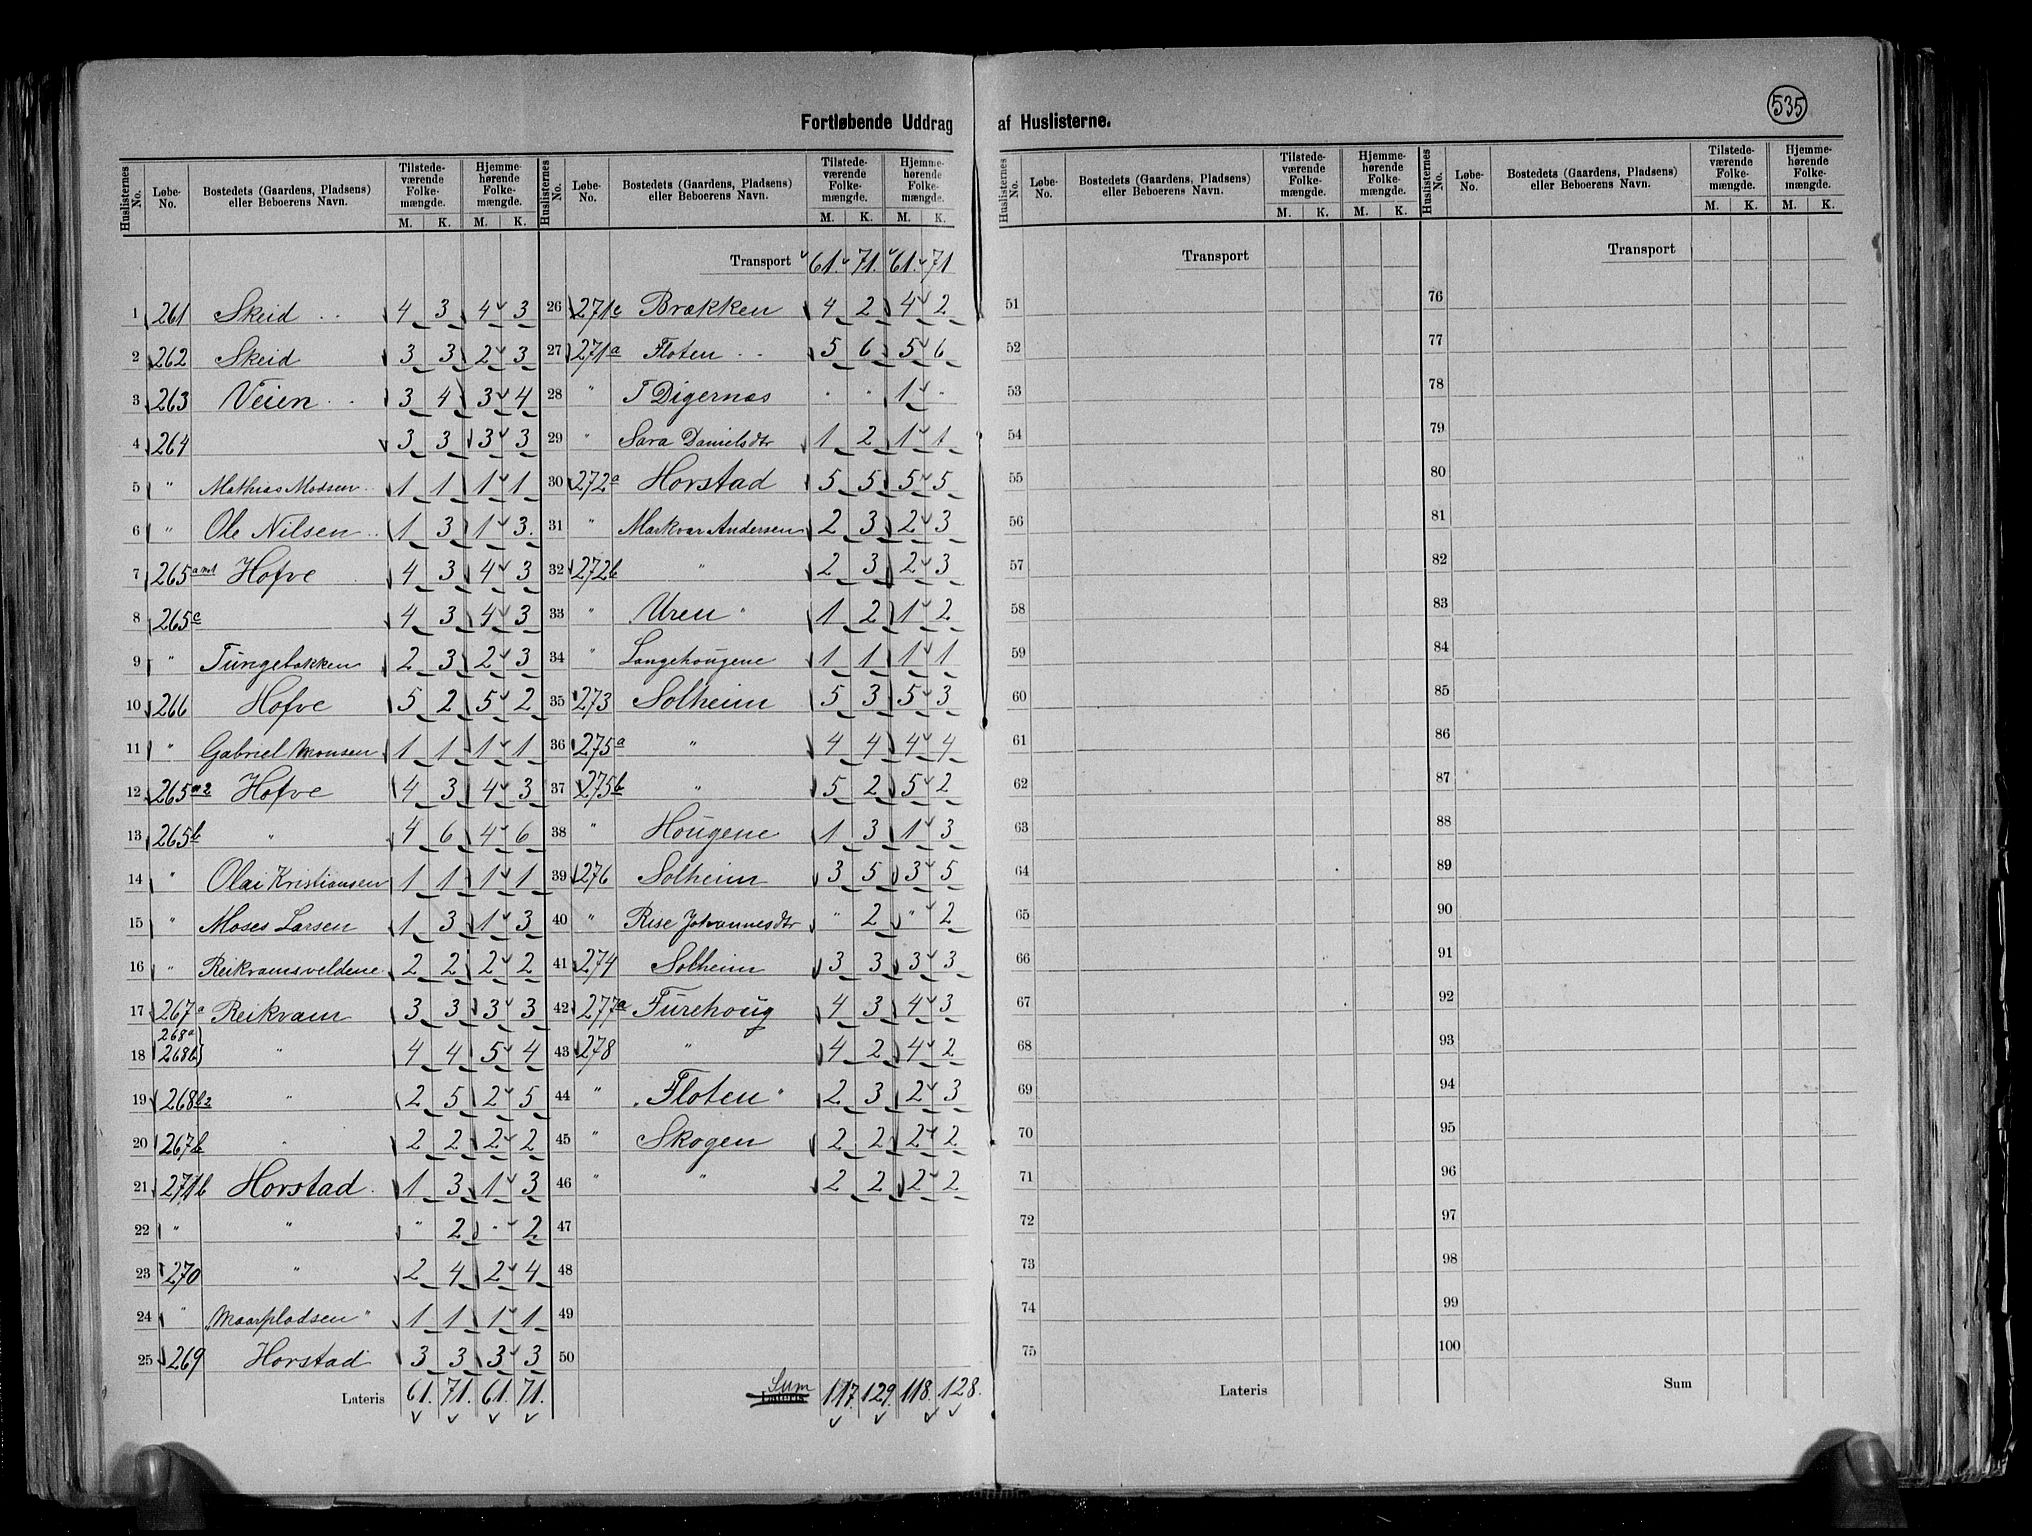 535
Fortløbende Uddrag af Huslisterne.
Huslisternes No. Løbe-No. Bostedets (Gaardens, Pladsens) eller Beboerens Navn. Tilstedeværende Folkemængde. M. K. Hjemmehørende Folkemængde. M. K.
1 261 Skeid 4 3 4 3
2 262 Skeid 3 3 2 3
3 263 Veien 3 4 3 4
4 264 3 3 3 3
5 " Mathias Madsen 1 1 1 1
6 " Ole Nilsen 1 3 1 3
7 265 a Hofve 4 3 4 3
8 265c 4 3 4 3
9 " Tungebakken 2 3 2 3
10 266 Hofve 5 2 5 2
11 " Gabriel Monsen 1 1 1 1
12 265 a2 Hofve 4 3 4 3
13 265b " 4 6 4 6
14 " Olai Kristiansen 1 1 1 1
15 " Moses Larsen 1 3 1 3
16 " Reikvamsveldene 2 2 2 2
17 267a Reikvam 3 3 3 3
268a
18 268b} " 4 4 5 4
19 268b2 " 2 5 2 5
20 267b " 2 2 2 2
21 271b Horstad 1 3 1 3
22 " " " 2 " 2
23 270 " 2 4 2 4
24 " "Maarpladsen" 1 1 1 1
25 269 Horstad 3 3 3 3
Lateris 61. 71. 61. 71.
Huslisternes No. Løbe-No. Bostedets (Gaardens, Pladsens) eller Beboerens Navn. Tilstedeværende Folkemængde. M. K. Hjemmehørende Folkemængde. M. K.
Transport 61. 71. 61. 71
26 271c Brækken 4 2 4 2
27 271a Floten 5 6 5 6
28 " I Digernæs " " 1 "
29 " Sara Danielsdtr 1 2 1 1
30 272a Horstad 5 5 5 5
31 " Markvar Andersen 2 3 2 3
32 272b " 2 3 2 3
33 " Uren " 1 2 1 2
34 " Langehougene 1 1 1 1
35 273 Solheim 5 3 5 3
36 275a " 4 4 4 4
37 275b " 5 2 5 2
38 " Hougene 1 3 1 3
39 276 Solheim 3 5 3 5
40 " Rise Johannesdtr " 2 " 2
41 274 Solheim 3 3 3 3
42 277a Furehoug 4 3 4 3
43 278 " 4 2 4 2
44 " "Floten" 2 3 2 3
45 " Skogen 2 2 2 2
46 " " 2 2 2 2
47
48
49
50
Sum
Lateris 117. 129. 118. 128.
Huslisternes No. Løbe-No. Bostedets (Gaardens, Pladsens) eller Beboerens Navn. Tilstedeværende Folkemængde. M. K. Hjemmehørende Folkemængde. M. K.
Transport
51
52
53
54
55
56
57
58
59
60
61
62
63
64
65
66
67
68
69
70
71
72
73
74
75
Lateris
Huslisternes No. Løbe-No. Bostedets (Gaardens, Pladsens) eller Beboerens Navn. Tilstedeværende Folkemængde. M. K. Hjemmehørende Folkemængde. M. K.
Transport
76
77
78
79
80
81
82
83
84
85
86
87
88
89
90
91
92
93
94
95
96
97
98
99
100
Sum